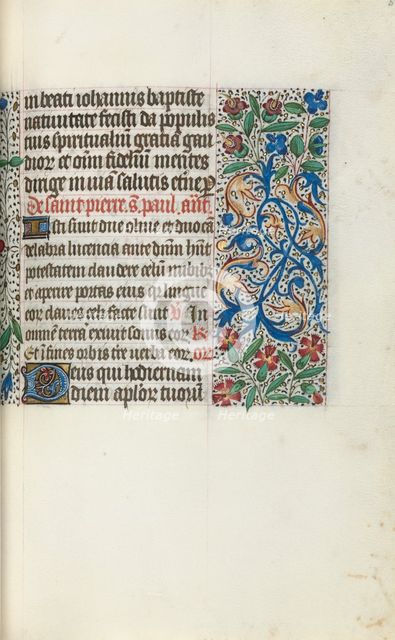 in beati iohannis baptiste
nativitate fecisti da populis
tuis spiritualium gratia gau
dior et oim fidelium mentes
dirige in viam salutis et
De saint pierre s. paul. ant
Isti sunt due olive et duo ca
delabra lucentia ante dnm hnt
potestatem claudere celum nubibz
et aperire portas eius qr lingue
eor claves celi facte sunt V In
omnem terra exivit sonus eor R
Et i fines orbis tre verba eor or
Deus qui hodiernam
diem aplor tuorum
Heritage
Heritage